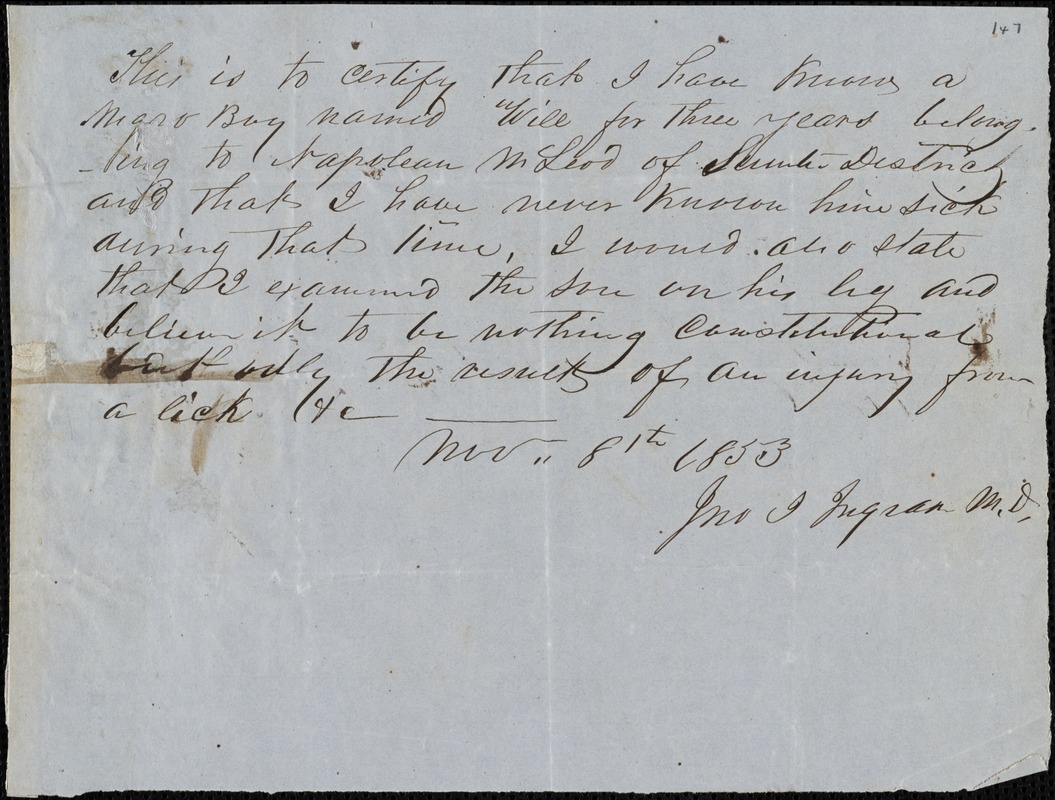 147
This is to certify that I have Known a
Negro Boy named Will for three years belong-
-ing to Napolean McLeod of Sumter District
and that I have never Known him sick
during that time, I would also state
that I examined the sore on his leg and
believe it to be nothing Constitutional
but only the result of an injury from
a lick &c
Nov. 8th 1853
Jno I Ingram M.D.